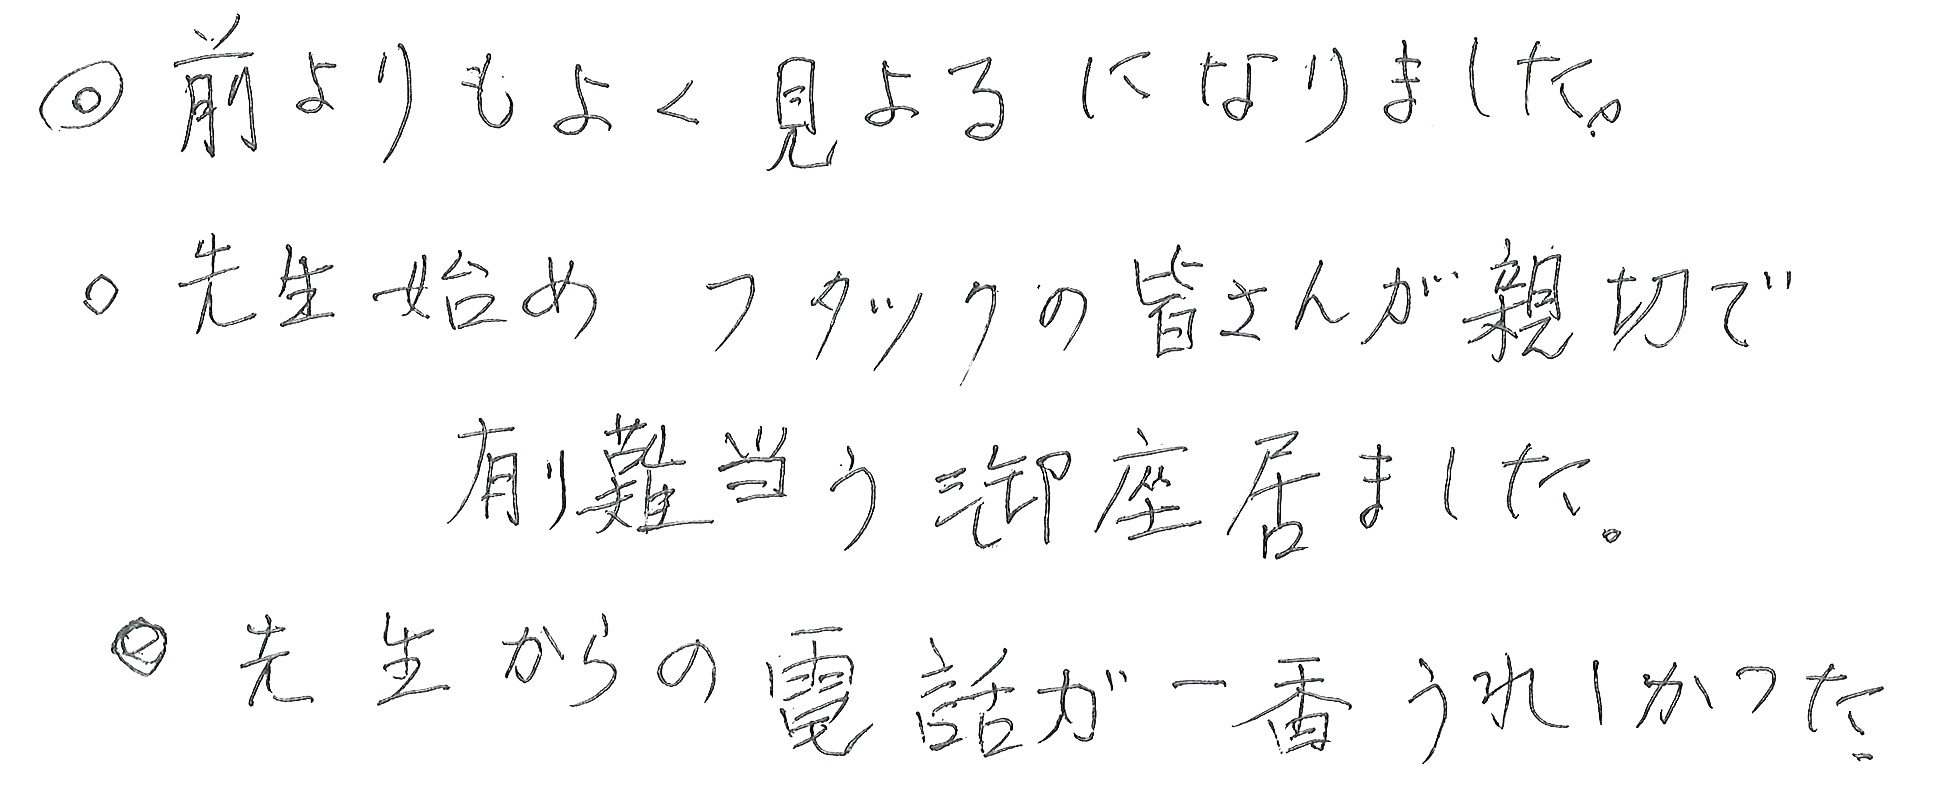 ◎前よりもよく見よるになりました。
○先生始め フタックの皆さんが親切で
有り難当う御座居ました。
◎先生からの電話が一番うれしかつた.